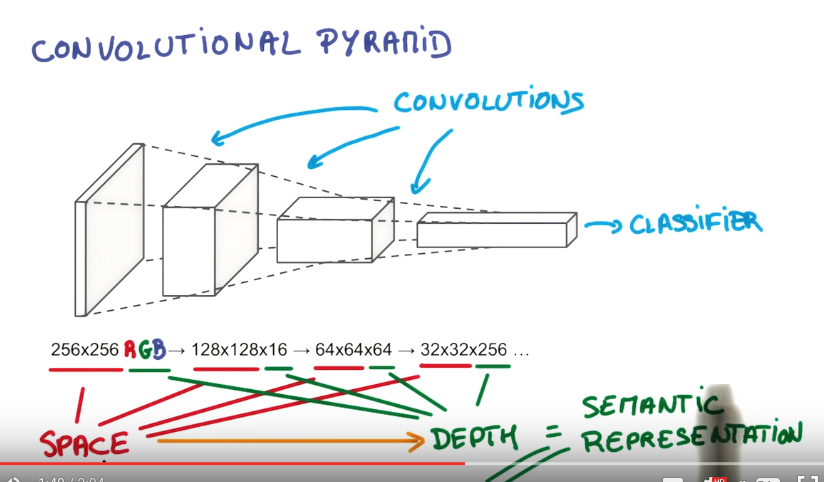 CONVOLUTIONAL PYRAMID
CONVOLUTIONS
CLASSIFIER
256x256 RGB → 128x128x16 → 64x64x64 → 32x32x256 ...
SPACE → DEPTH = SEMANTIC
REPRESENTATION
HD